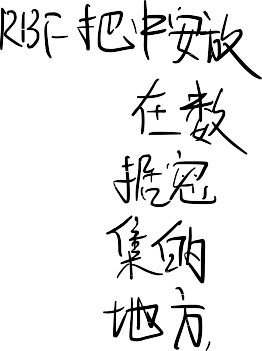 RBF把中安放
在数
据密
集的
地方,